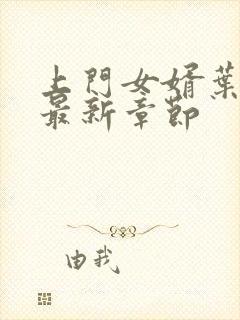 上門女婿葉
最新章節
由我